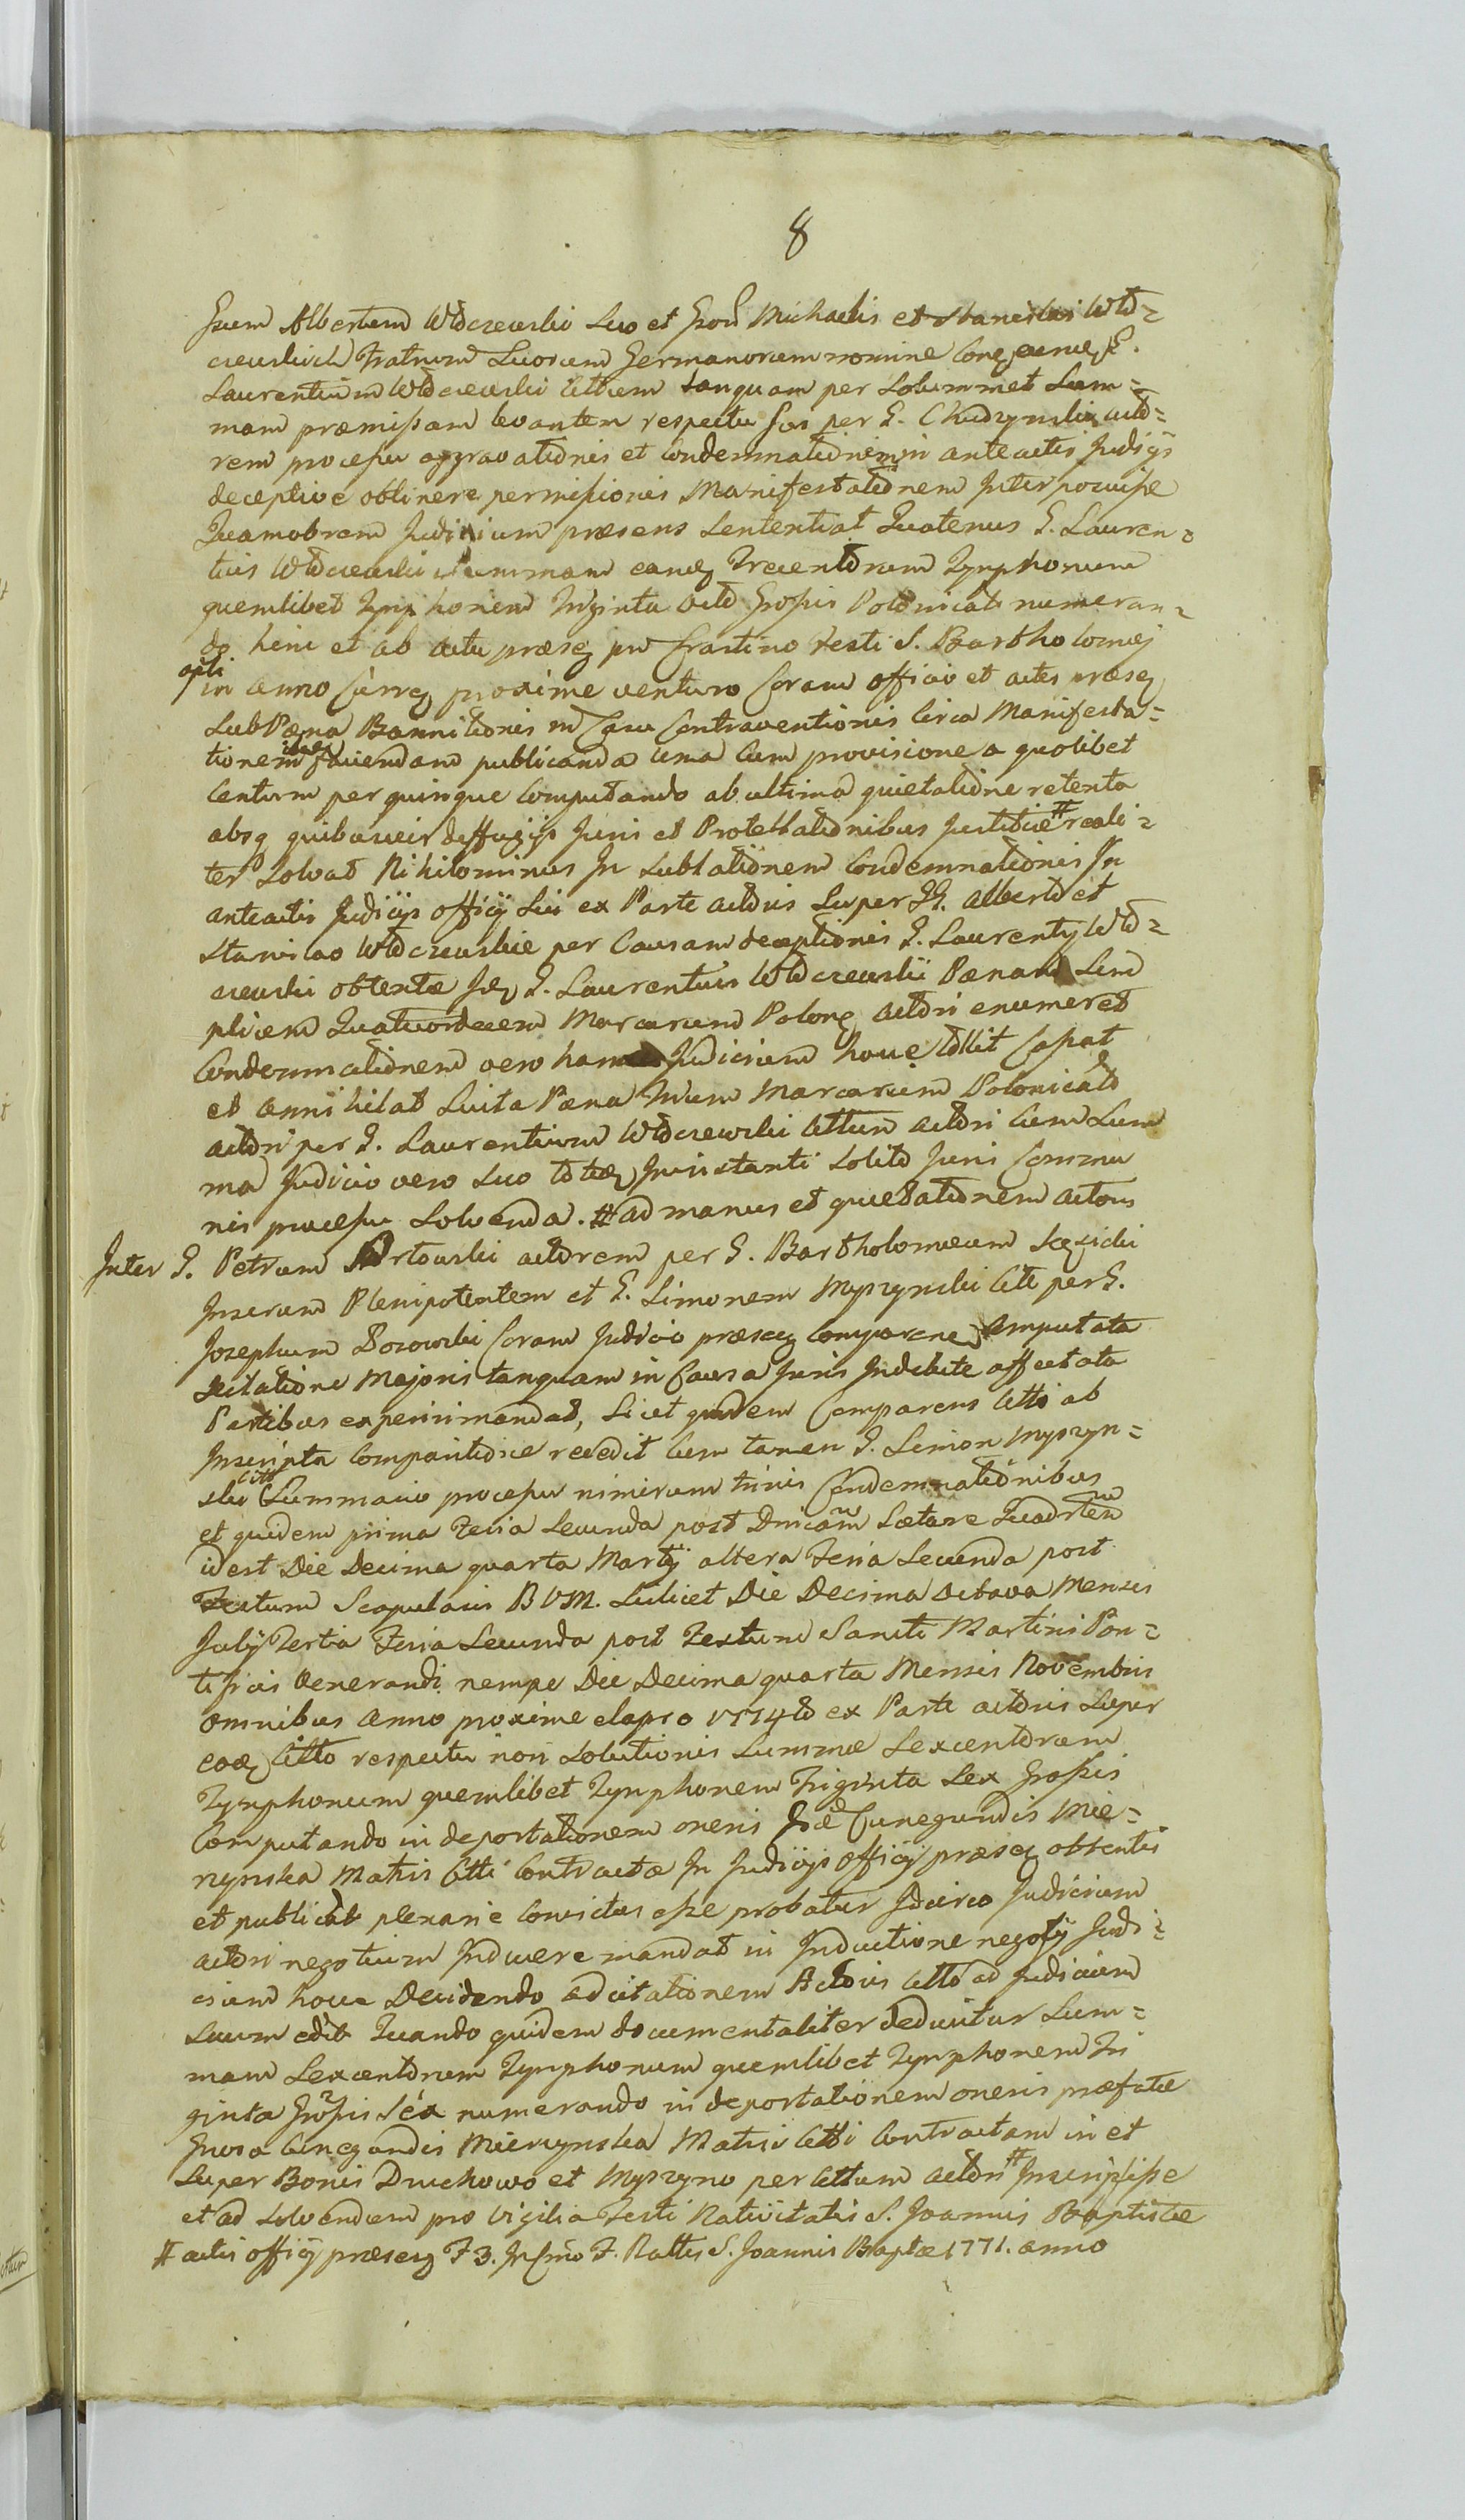 8
sum Albertum Włoczewski suo et Grosi Michaelis et Stanislai Wło=
czewskich Fratrum Suorum Germanorum nomine
Laurentium Włoczewski Cittum tanquam per Solummet Sum=
mam præmissam levantem respectu sui per G. Chudzynski acto=
rem processu aggravationis et Condemnationem in anteactis Judiys
deceptive obtinere permissionis Manifestationem Interposuisse
Quamobrem Judicium præsens Sententiat Quatenus G. Lauren=
tius Włoczewski Summam eandz Trecentorum Tynphonum
quemlibet Tynphonem Triginta octo Grossis Polonicat numeran=
do hinc et ab actu præsz pro Crastino Festi S. Bartholomæj
apli
in Anno Currz proxime venturo Coram officio et actis præsz
Sub Pæna Bannitionis in Casu Contraventionis Circa Manifesta=
tionem faciendam publicanda una Cum provisione a quolibet
Centum per quinque Computando ab ultima quietatione retenta
absq quibusvis deffugijs Juris et Protestationibus Justitiæ # reali=
ter Solvat Nihilominus In Sublationem Condemnationis In
anteactis Judicijs officij Sui ex Parte actoris Super GG. Alberto et
Stanislao Włoczewskie per Causam deceptionis G. Laurentij Wło=
czewski obtentæ Idz G. Laurentius Włoczewski Pænam Sim
plicem Quatuordecem Marcarum Polonz actori enumeret
Condemnationem vero hanc Judicium hocce tollit Cassat
et annihilat Luita Pæna Trium Marcarum Polonicato
actori per G. Laurentium Włoczewski Cittum actori Cum Sum
ma Judicio vero suo totidz Ininstanti Solito Juris Commu
nis processu Solvenda. # ad manus et quietationem actoris
Inter G. Petrum Artowski actorem per G. Bartholomæum
Inserum Plenipotentem et G. Simonem Myszynski Citt per G.
Josephum Bosowski Coram Judicio præsenz Comparene Amputata
Dilatione Majoris tanquam in Causa Juris Indebite affectata
Partibus experiri mandat, Licet quidem Comparens Citti ab
Inscripta Comparitione recedit Cum tamen G. Simon Myszyn=
ski Citt Summario processu nimirum trinis Condemnationibus
et quidem prima Feria Secunda post Dnicam Lætare Quadrten
idest Die Decima quarta Martij altera Feria Secunda post
Festum Scapularis B V M. Scilicet Die Decima Octava Mensis
Julij Tertia Feria Secunda post Festum Sancti Martini Pon=
tificis Venerandi nempe Die Decima quarta Mensis Novembris
omnibus Anno proxime elapso 1774to ex Parte actoris Super
eodz Citto respectu non Solutionis Summæ Sexcentorum
Tynphonum quemlibet Tynphonem Triginta Sex Grossis
Computando in deportationem oneris Gsæ Cunegundis Mie=
rzynska Matris Citti Contractæ In Judicijs officij præsz obtentis
et publicat plenarie Convictus esse probatur Idcirco Judicium
actori negotium Inducere mandat in Inductione negotij Judi=
cium hocce Decidendo ad citationem Actoris Citto ad Judicium
Suum edit Quando quidem documentaliter deducitur Sum=
mam Sexcentorum Tynphonum quemlibet Tynphonem Tri
ginta Grossis Sex numerando in deportationem oneris præfatæ
Gnosa Cunegundis Mierzynska Matris Citti Contractam in et
Super Bonis Druchowo et Myszyno per Cittum actori # Inscripsisse
et ad Solvendum pro Vigilia Festi Nativitatis S. Joannis Baptistæ
# actis officij præsenz F 3. In Cmo F. Nattis S. Joannis Baptæ 1771. anno